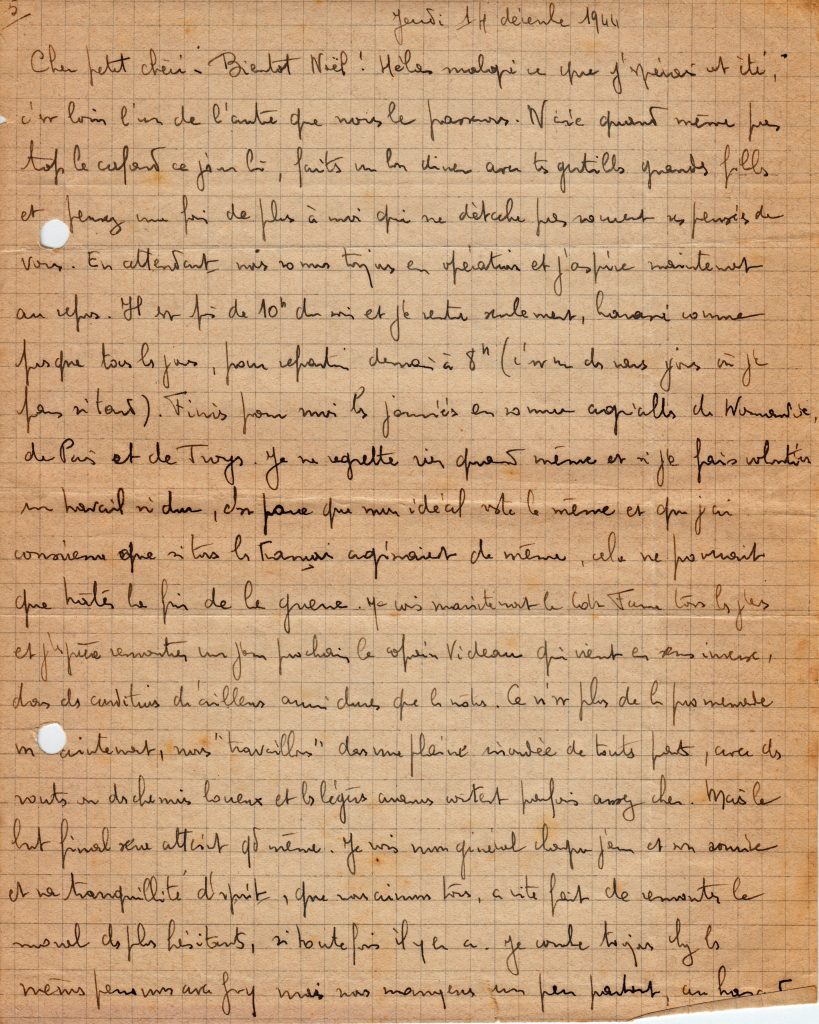 5
Jeudi 14 décembre 1944
Cher petit chéri. Bientot Noël! Hélas malgré ce que j'espérais cet été,
c'est loin l'un de l'autre que nous le passerons. N'aie quand même pas
trop le cafard ce jour là, faites un bon diner avec tes gentilles grandes filles
et pensez une fois de plus à moi qui ne détache pas souvent ses pensées de
vous. En attendant nous sommes toujours en opérations et j'aspire maintenant
au repos. Il est près de 10h du soir et je rentre seulement, harassé comme
presque tous les jours, pour repartir demain à 8h (c'est un des rares jours où je
pars si tard). Finis pour moi les journées en somme agréables de Normandie,
de Paris et de Troyes. Je ne regrette rien quand même et si je fais volontiers
un travail si dur, c'est parce que mon idéal reste le même et que j'ai
conscience que si tous les Français agissaient de même, cela ne pourrait
que hâter la fin de la guerre. Je vois maintenant le Cdt tous les jours
et j'espère rencontrer un jour prochain le copain Videau qui vient en sens inverse,
dans des conditions d'ailleurs aussi dures que les notres. Ce n'est plus de la promenade
maintenant, nous "travaillons" dans une plaine inondée de toutes parts, avec des
routes ou des chemins boueux et les légères avances coutent parfois assez cher. Mais le
but final sera atteint qd même. Je vois mon général chaque jour et son sourire
et sa tranquillité d'esprit, que nous aimons tous, a vite fait de remonter le
moral des plus hésitants, si toutefois il y en a. Je couche toujours chez les
mêmes personnes avec mais nous mangeons un peu partout, au hasard